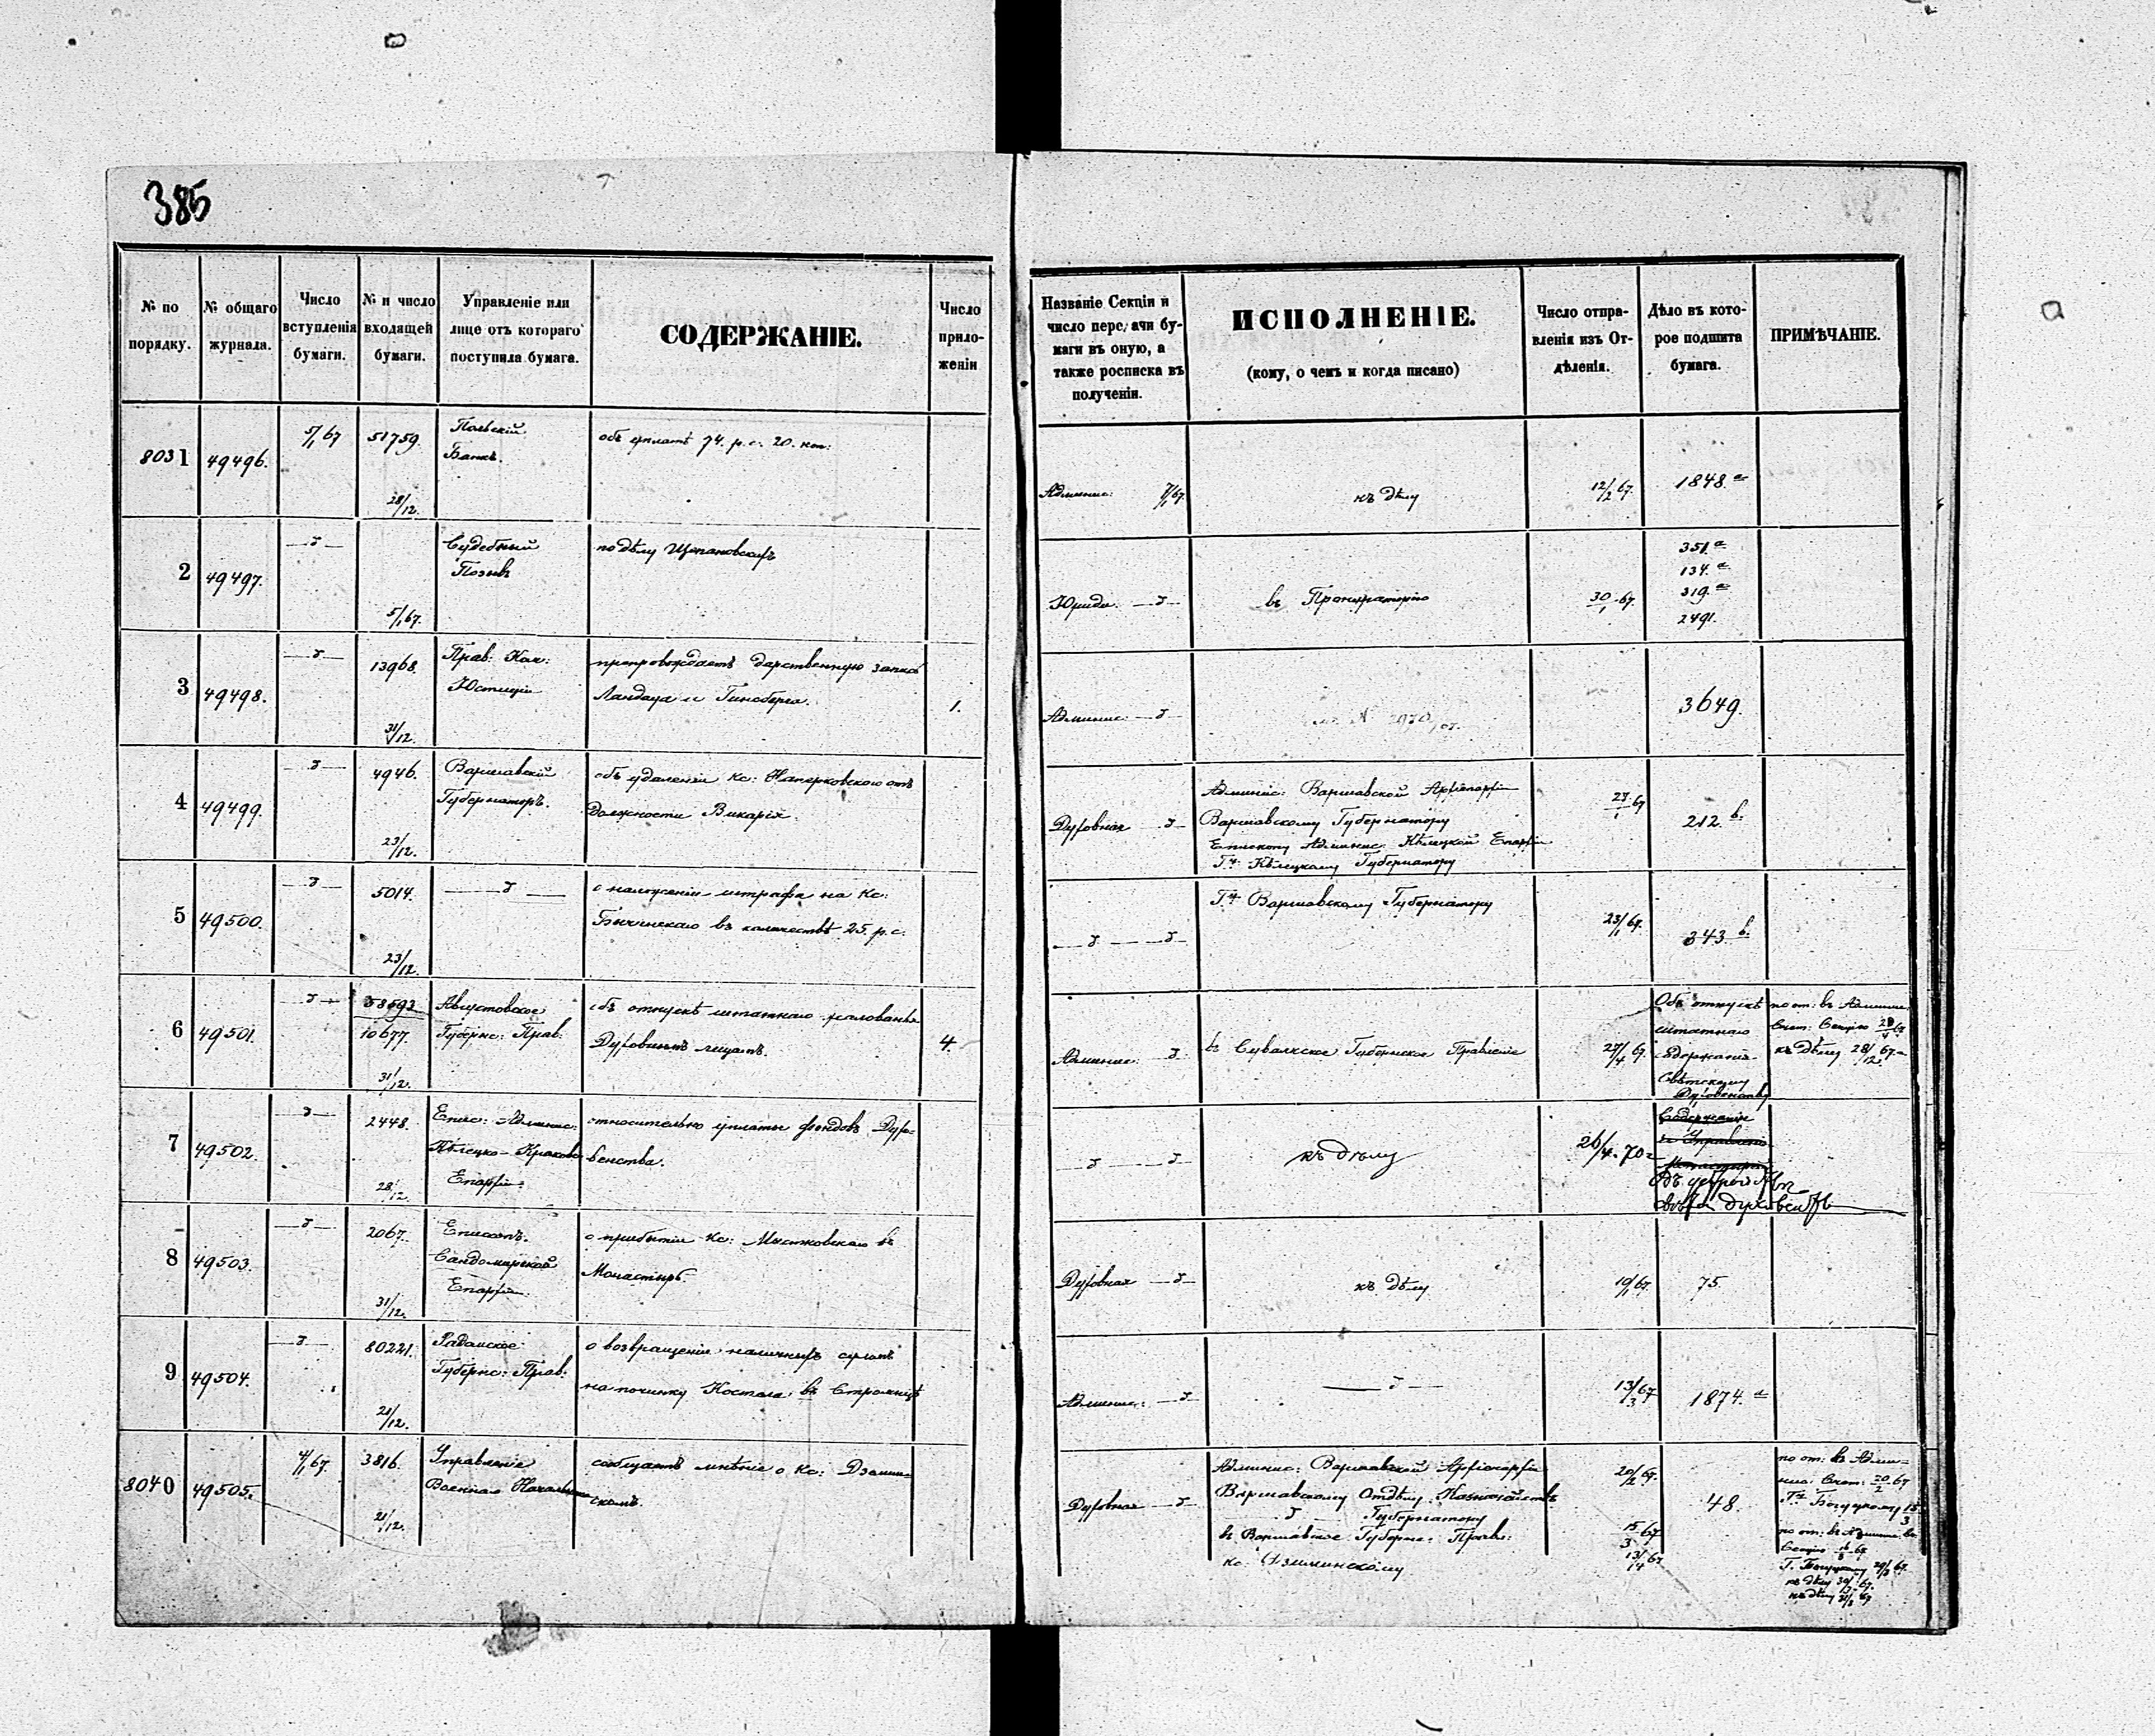 385
№ по порядку.
№ общаго журнала.
Число вступленія бумаги.
№ и число входящей бумаги.
Управленіе или лице отъ котораго поступила бумага.
СОДЕРЖАНІЕ.
Число приложеній
Названіе Секціи и число передачи бумаги въ оную, а также росписка въ полученіи.
ИСПОЛНЕНІЕ.
(кому, о чемъ и когда писано)
Число отправленія изъ Отдѣленія.
Дѣло въ которое подшита бумага.
ПРИМѢЧАНІЕ.
8031
49496.
5/1 67
51759.
28/12.
Польскій
Банкъ.
объ уплатѣ 74. р. с. 20. коп:
Админис: 7/1 67.
къ дѣлу
12/2 67.
1848. а
2
49497.
5/1 67.
Судебный
Позывъ
по дѣлу Щепановскихъ
Юриди.
въ Прокураторію
30/1 67.
351. а
134. а
319. а
2491.
3
49498.
13968.
31/12.
Прав: Ком:
Юстиціи
препровождаетъ дарственную запись
Ландауа и Гинсберга.
1.
Админис:
3649.
4
49499.
4946.
23/12.
Варшавскій
Губернаторъ.
объ удаленіи Кс: Наперковскаго отъ
должности Викарія.
Духовная
Админис: Варшавской Архіепархіи
Варшавскому Губернатору
Епископу Админис: Кѣлецкой Епархіи
Г-ну Кѣлецкому Губернатору
23/1 67
212. b.
5
49500.
5014.
23/12.
о наложеніи штрафа на Кс:
въ количествѣ 25. р. с.
Г-ну Варшавскому Губернатору
23/1 67.
343. b.
6
49501.
58693
10677.
31/12.
Августовское
Губернс: Прав:
объ отпускѣ штатнаго жалованья
Духовнымъ лицамъ.
4.
Админис:
въ Сувалкское Губернское Правленіе
27/4 67.
Объ отпускѣ
штатнаго
содержанія
Свѣтскому
Духовенству
по от: въ Админис
Счет: Секцію
къ дѣлу 28/12 67.
7
49502.
2448.
28/12.
Епис: Админис:
Кѣлецко-Краковс
Епархіи.
относительно уплаты фондовъ Духо-
венства.
къ дѣлу
26/4 70
Содержаніе
8
49503.
2067.
31/12.
Епископъ.
Сандомирской
Епархіи.
о прибытіи Кс: Мысяковскаго въ
Монастырь.
Духовная
къ дѣлу
10/1 67.
75.
9
49504.
80221.
21/12.
Радомское
Губернс: Прав:
о возвращеніи наличныхъ суммъ
на починку Костела въ Стромицѣ
Админис:
13/3 67
1874. а
8040
49505.
4/1 67.
3816.
21/12.
Управленіе
Военнаго Начальника
сообщаетъ мнѣніе о Кс: Дзимин-
скомъ.
Духовная
Админис: Варшавской Архіепархіи
Варшавскому Отдѣлу Казначействъ
Губернатору
въ Варшавское Губернс: Правл:
кс: Дзиминскому
20/2 67.
15/3 67
13/14 67
48.
по от: въ Админ-
нис: Счет: 20/2 67
Г-ну
по от: въ Админис
Секцію
къ дѣлу
къ дѣлу